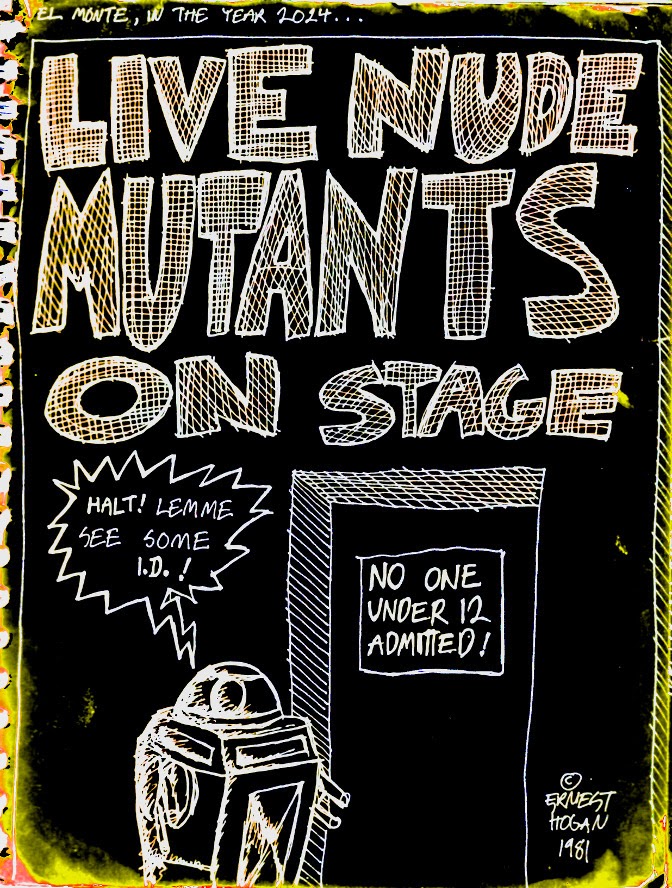 EL MONTE, IN THE YEAR 2024...
LIVE NUDE
MUTANTS
ON STAGE
HALT! LEMME
SEE SOME
I.D.!
NO ONE
UNDER 12
ADMITTED!
©
ERNEST
HOGAN
1981